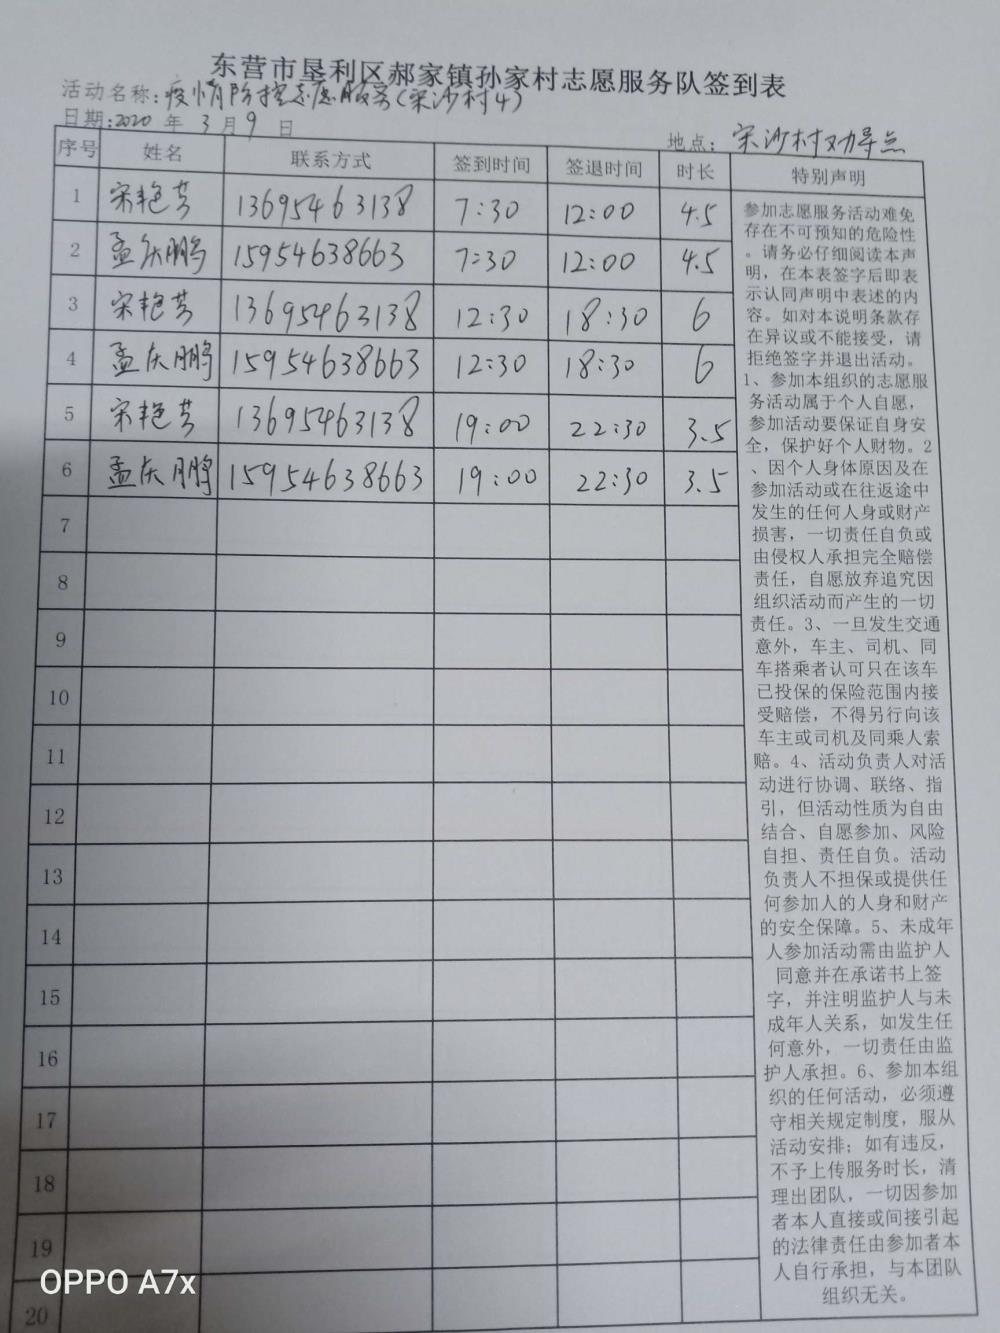 东营市垦利区郝家镇孙家村志愿服务队签到表
活动名称:疫情防控志愿服务(宋沙村4)
日期:2020 年 3 月 9 日
地点: 宋沙村劝导点
序号 姓名 联系方式 签到时间 签退时间 时长 特别声明
1 宋艳芳 13695463138 7:30 12:00 4.5
2 孟庆鹏 15954638663 7:30 12:00 4.5
3 宋艳芳 13695463138 12:30 18:30 6
4 孟庆鹏 15954638663 12:30 18:30 6
5 宋艳芳 13695463138 19:00 22:30 3.5
6 孟庆鹏 15954638663 19:00 22:30 3.5
7
8
9
10
11
12
13
14
15
16
17
18
19
20
参加志愿服务活动难免
存在不可预知的危险性
。请务必仔细阅读本声
明，在本表签字后即表
示认同声明中表述的内
容。如对本说明条款存
在异议或不能接受，请
拒绝签字并退出活动。
1、参加本组织的志愿服
务活动属于个人自愿，
参加活动要保证自身安
全，保护好个人财物。2
、因个人身体原因及在
参加活动或在往返途中
发生的任何人身或财产
损害，一切责任自负或
由侵权人承担完全赔偿
责任，自愿放弃追究因
组织活动而产生的一切
责任。3、一旦发生交通
意外，车主、司机、同
车搭乘者认可只在该车
已投保的保险范围内接
受赔偿，不得另行向该
车主或司机及同乘人索
赔。4、活动负责人对活
动进行协调、联络、指
引，但活动性质为自由
结合、自愿参加、风险
自担、责任自负。活动
负责人不担保或提供任
何参加人的人身和财产
的安全保障。5、未成年
人参加活动需由监护人
同意并在承诺书上签
字，并注明监护人与未
成年人关系，如发生任
何意外，一切责任由监
护人承担。6、参加本组
织的任何活动，必须遵
守相关规定制度，服从
活动安排；如有违反，
不予上传服务时长，清
理出团队，一切因参加
者本人直接或间接引起
的法律责任由参加者本
人自行承担，与本团队
组织无关。
OPPO A7x